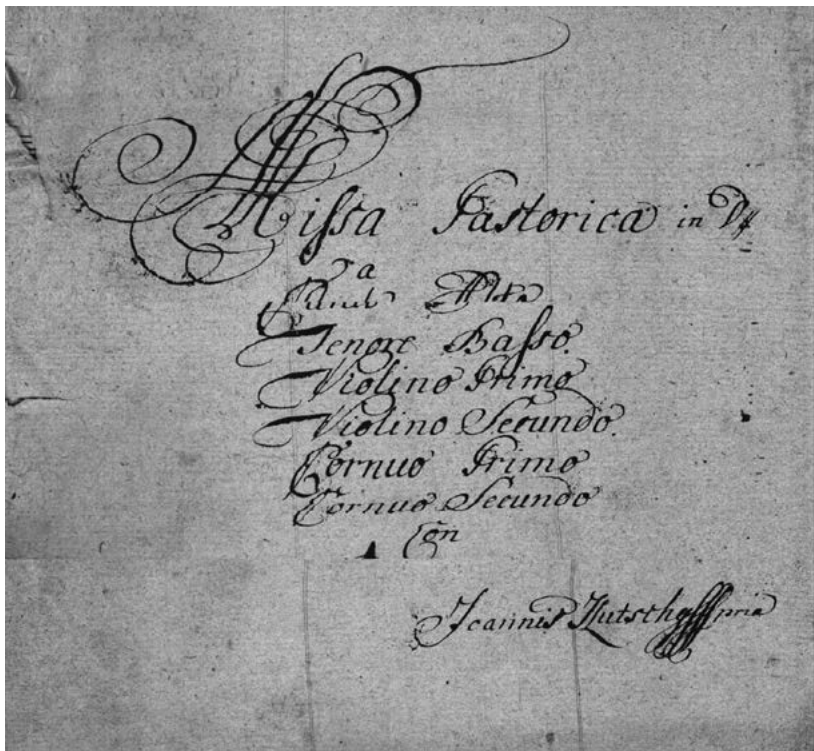 Missa Pastorica in D#
a
Alto
Tenore Basso.
Violino Primo
Violino Secundo.
Cornuo Primo
Cornuo Secundo
Con
Joannis